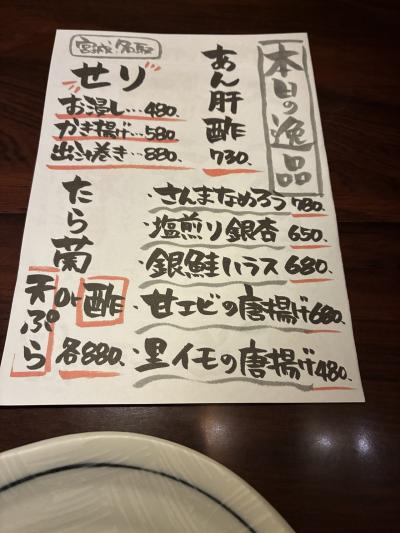 本日の逸品
あん肝酢
730.
宮城・名取
せり
お浸し…480.
かき揚げ…580
出汁巻き…880.
・さんまなめろう780.
・塩煎り銀杏 650.
・銀鮭ハラス 680.
・甘エビの唐揚げ680.
・里イモの唐揚げ480.
たら菊
酢
or
天ぷら
各880.